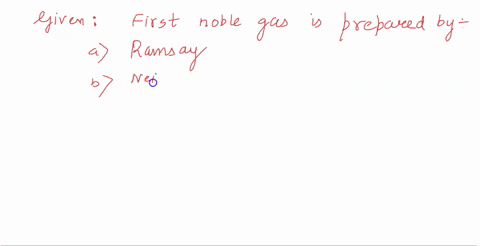 Given: First noble gas is prepared by:-
a) Ramsay
b) Nei